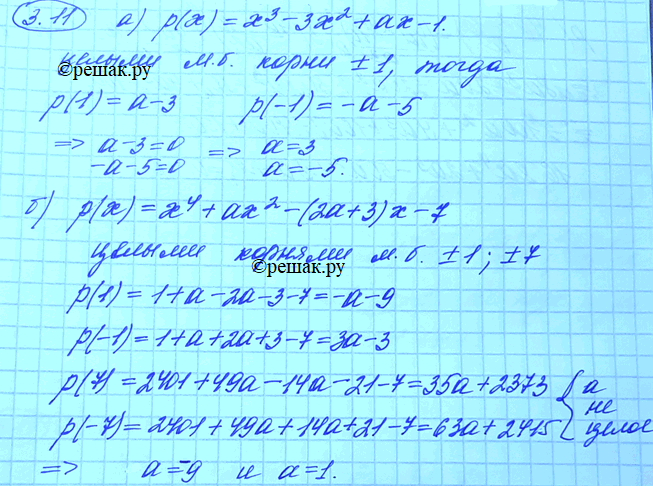 3.11 а) p(x) = x³ - 3x² + ax - 1.
целыми м.б. корни ±1, тогда
©решак.ру
p(1) = a - 3 p(-1) = -a - 5
=> a - 3 = 0 => a = 3
-a - 5 = 0 a = -5.
б) p(x) = x⁴ + ax² - (2a + 3)x - 7
целыми корнями м.б. ±1; ±7
©решак.ру
p(1) = 1 + a - 2a - 3 - 7 = -a - 9
p(-1) = 1 + a + 2a + 3 - 7 = 3a - 3
p(7) = 2401 + 49a - 14a - 21 - 7 = 35a + 2373 { a
не
p(-7) = 2401 + 49a + 14a + 21 - 7 = 63a + 2415 целое
=> a = -9 и a = 1.